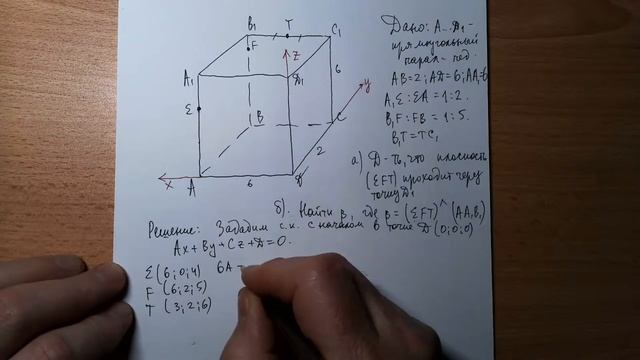 B₁
T
C₁
F
Z
A₁
D₁
6
y
E
B
C
2
x
A
6
D
Дано: A...D₁ -
прямоугольный
парал-пед.
AB=2; AD=6; AA₁=6
A₁E : EA = 1:2.
B₁F : FB = 1:5.
B₁T = TC₁
а) Д-ть, что плоскость
(EFT) проходит через
точку D₁
б). Найти β, где β = (EFT)^(AA₁B₁)
Решение: Зададим с.к. с началом в точке D (0;0;0)
Ax + By + Cz + D = 0.
E (6; 0; 4) 6A +
F (6; 2; 5)
T (3; 2; 6)